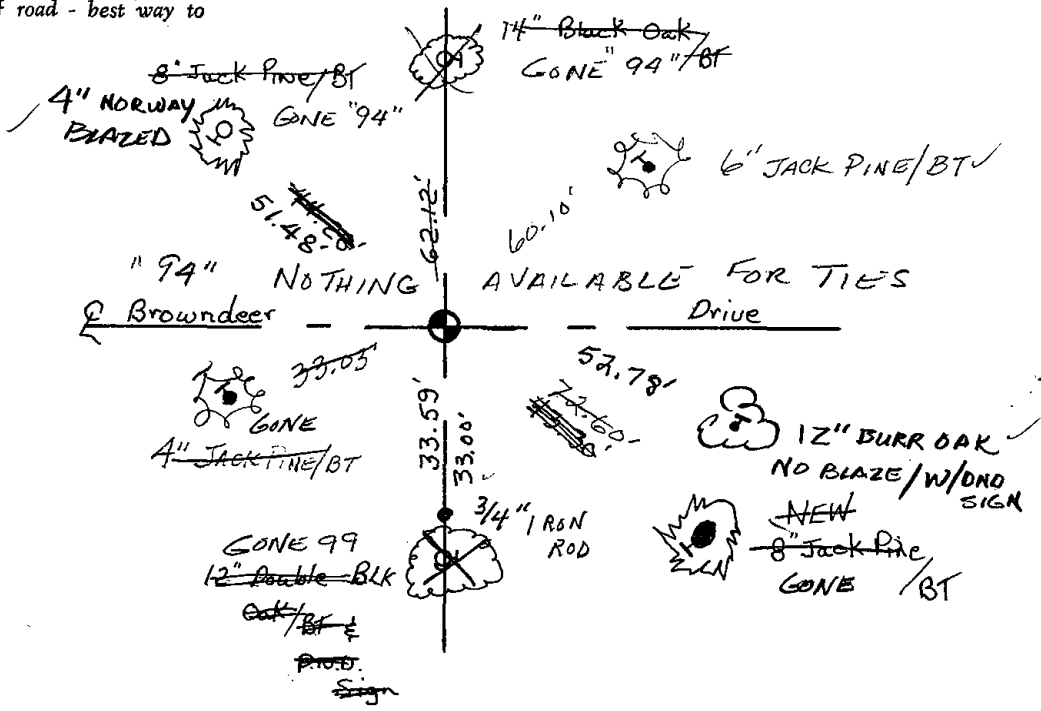 road - best way to
14" Black Oak/BT
GONE "94"
8" Jack Pine/BT
GONE "94"
4" NORWAY
BLAZED
6" JACK PINE/BT
51.48
62.12'
60.10'
"94" NOTHING AVAILABLE FOR TIES
℄ Browndeer Drive
33.05'
GONE
4" JACK PINE/BT
33.59'
33.00'
52.78'
72.60
12" BURR OAK
NO BLAZE/W/DND
SIGN
3/4" IRON
ROD
NEW
8" Jack Pine/BT
GONE
GONE 99
12" Double BLK
Oak/BT &
P.N.D.
Sign